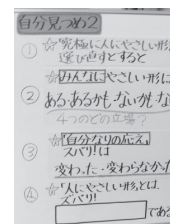 自分見つめ2
① ☆"究極に人にやさしい形
選び直すとすると
☆みんなにやさしい形に
② ある・あるかも・ないかも・な
4つのどの立場？
③ ☆"自分なりの応え"
ズバリ!は
変わった・変わらなかった
④ ☆"人にやさしい形"とは、
ズバリ!
である